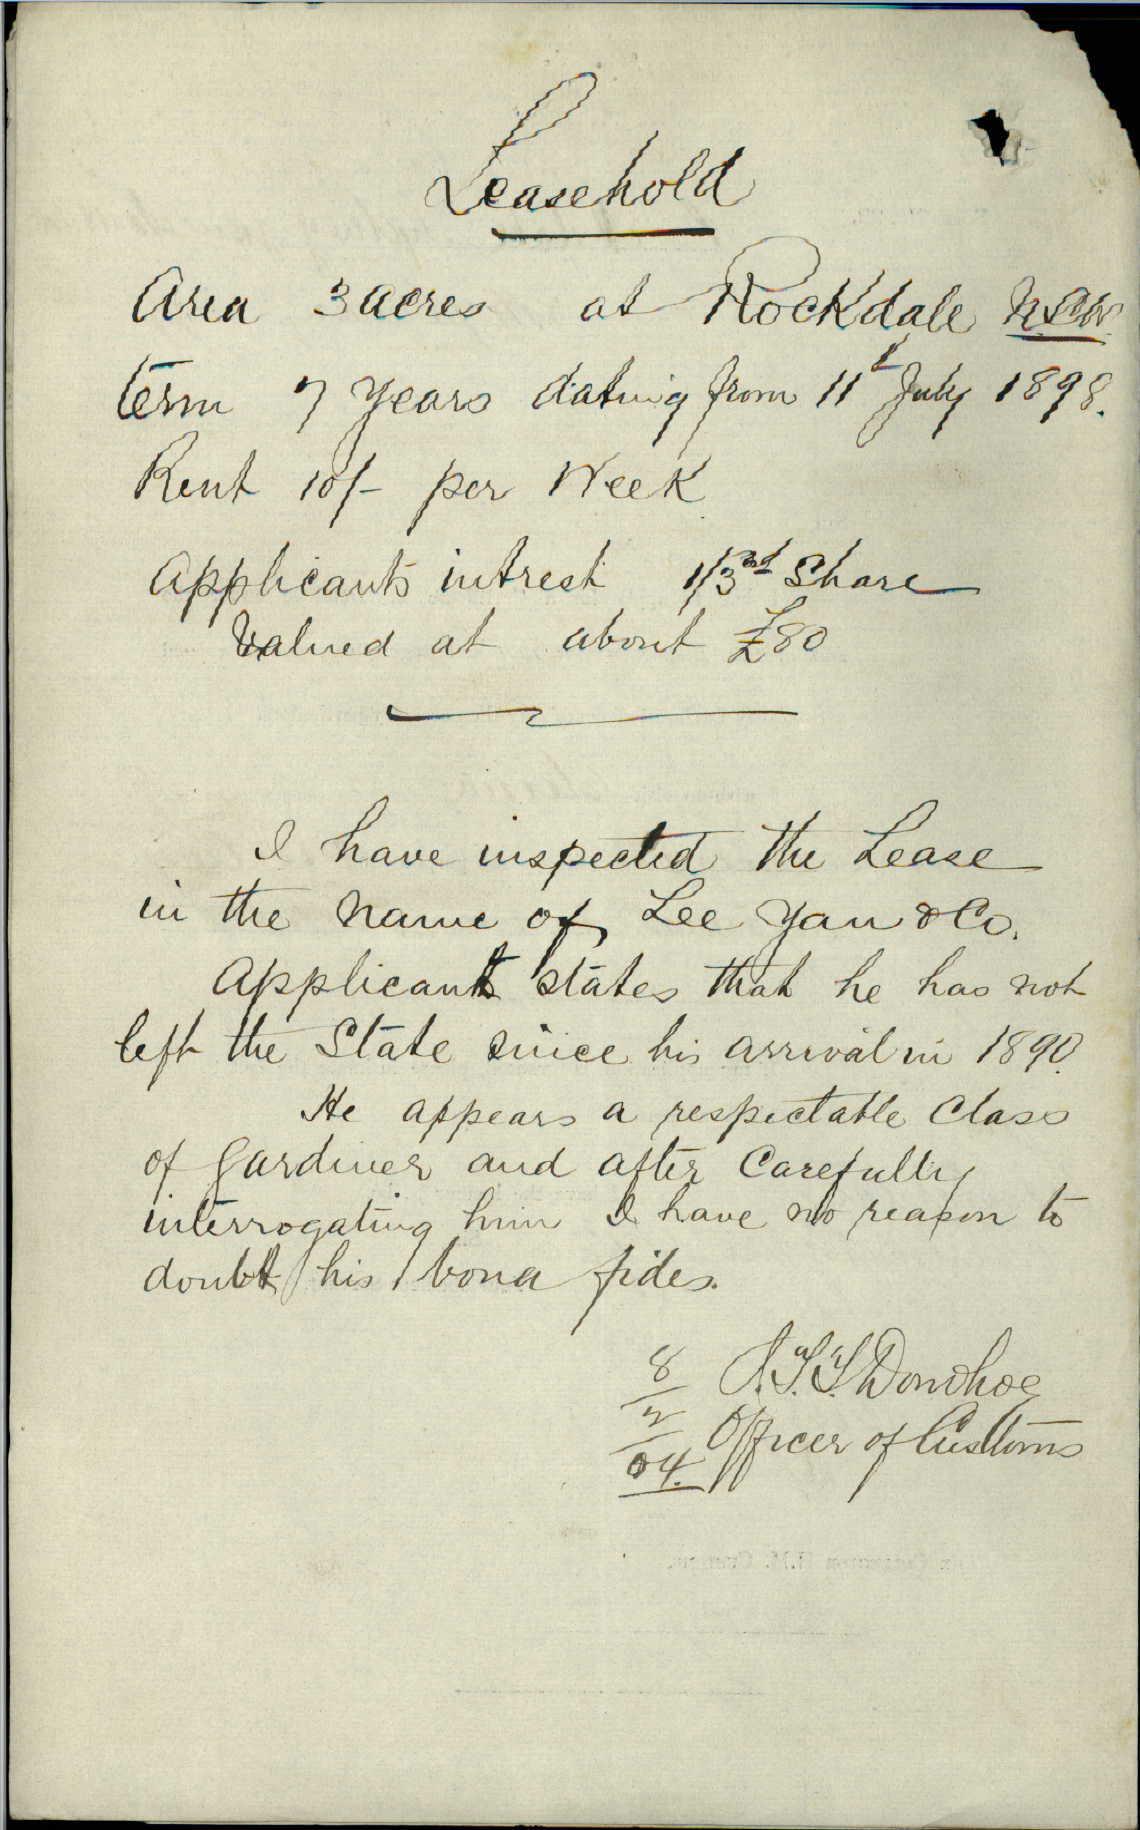 Leasehold
Area 3 acres at Rockdale N.S.W.
term 7 years dating from 11th July 1898.
Rent 10/- per Week
Applicants intrest 1/3rd Share
Valued at about £80
I have inspected the Lease
in the name of Lee Yan & Co.
Applicant states that he has not
left the State since his arrival in 1890.
He appears a respectable Class
of Gardiner and after Carefully
interrogating him I have no reason to
doubt his bona fides.
8/2/04. J.T.T. Donohoe
Officer of Customs